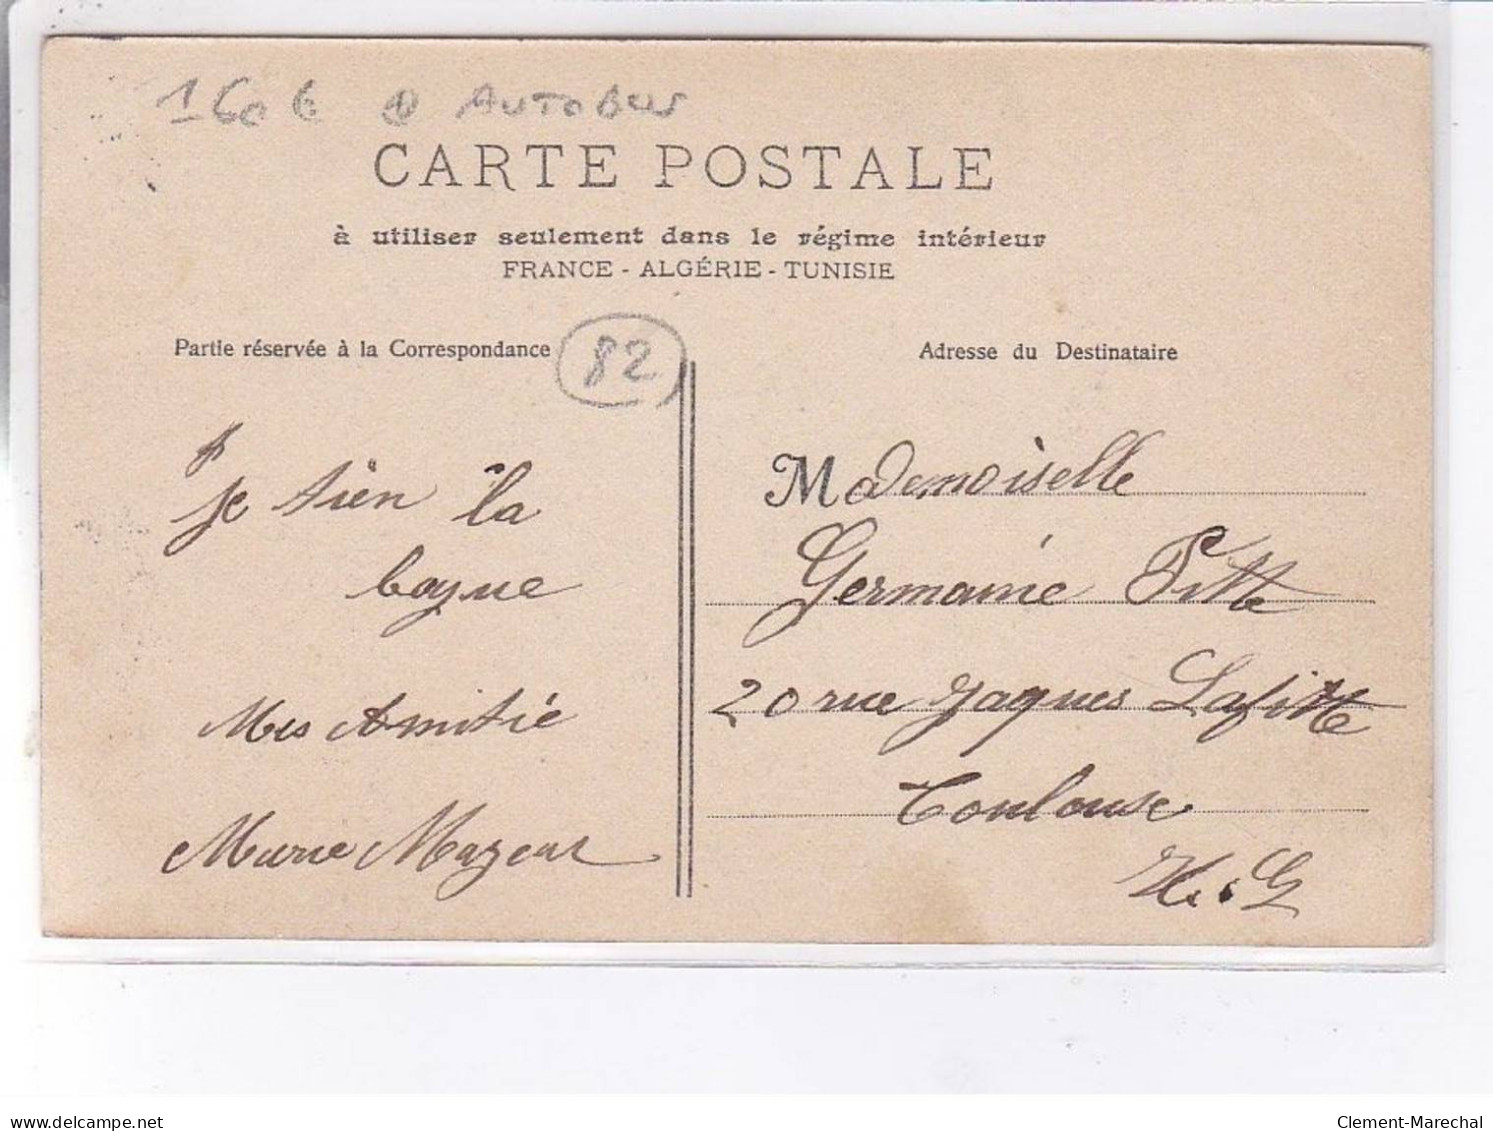 160 € AUTOBUS
CARTE POSTALE
à utiliser seulement dans le régime intérieur
FRANCE - ALGÉRIE - TUNISIE
Partie réservée à la Correspondance
82
Je tien la
bague
Mes Amitié
Marie Mazeur
Adresse du Destinataire
Mademoiselle
Germaine Pitte
20 rue Jaques Lafitte
Toulouse
H. G
delcampe.net
Clement-Marechal